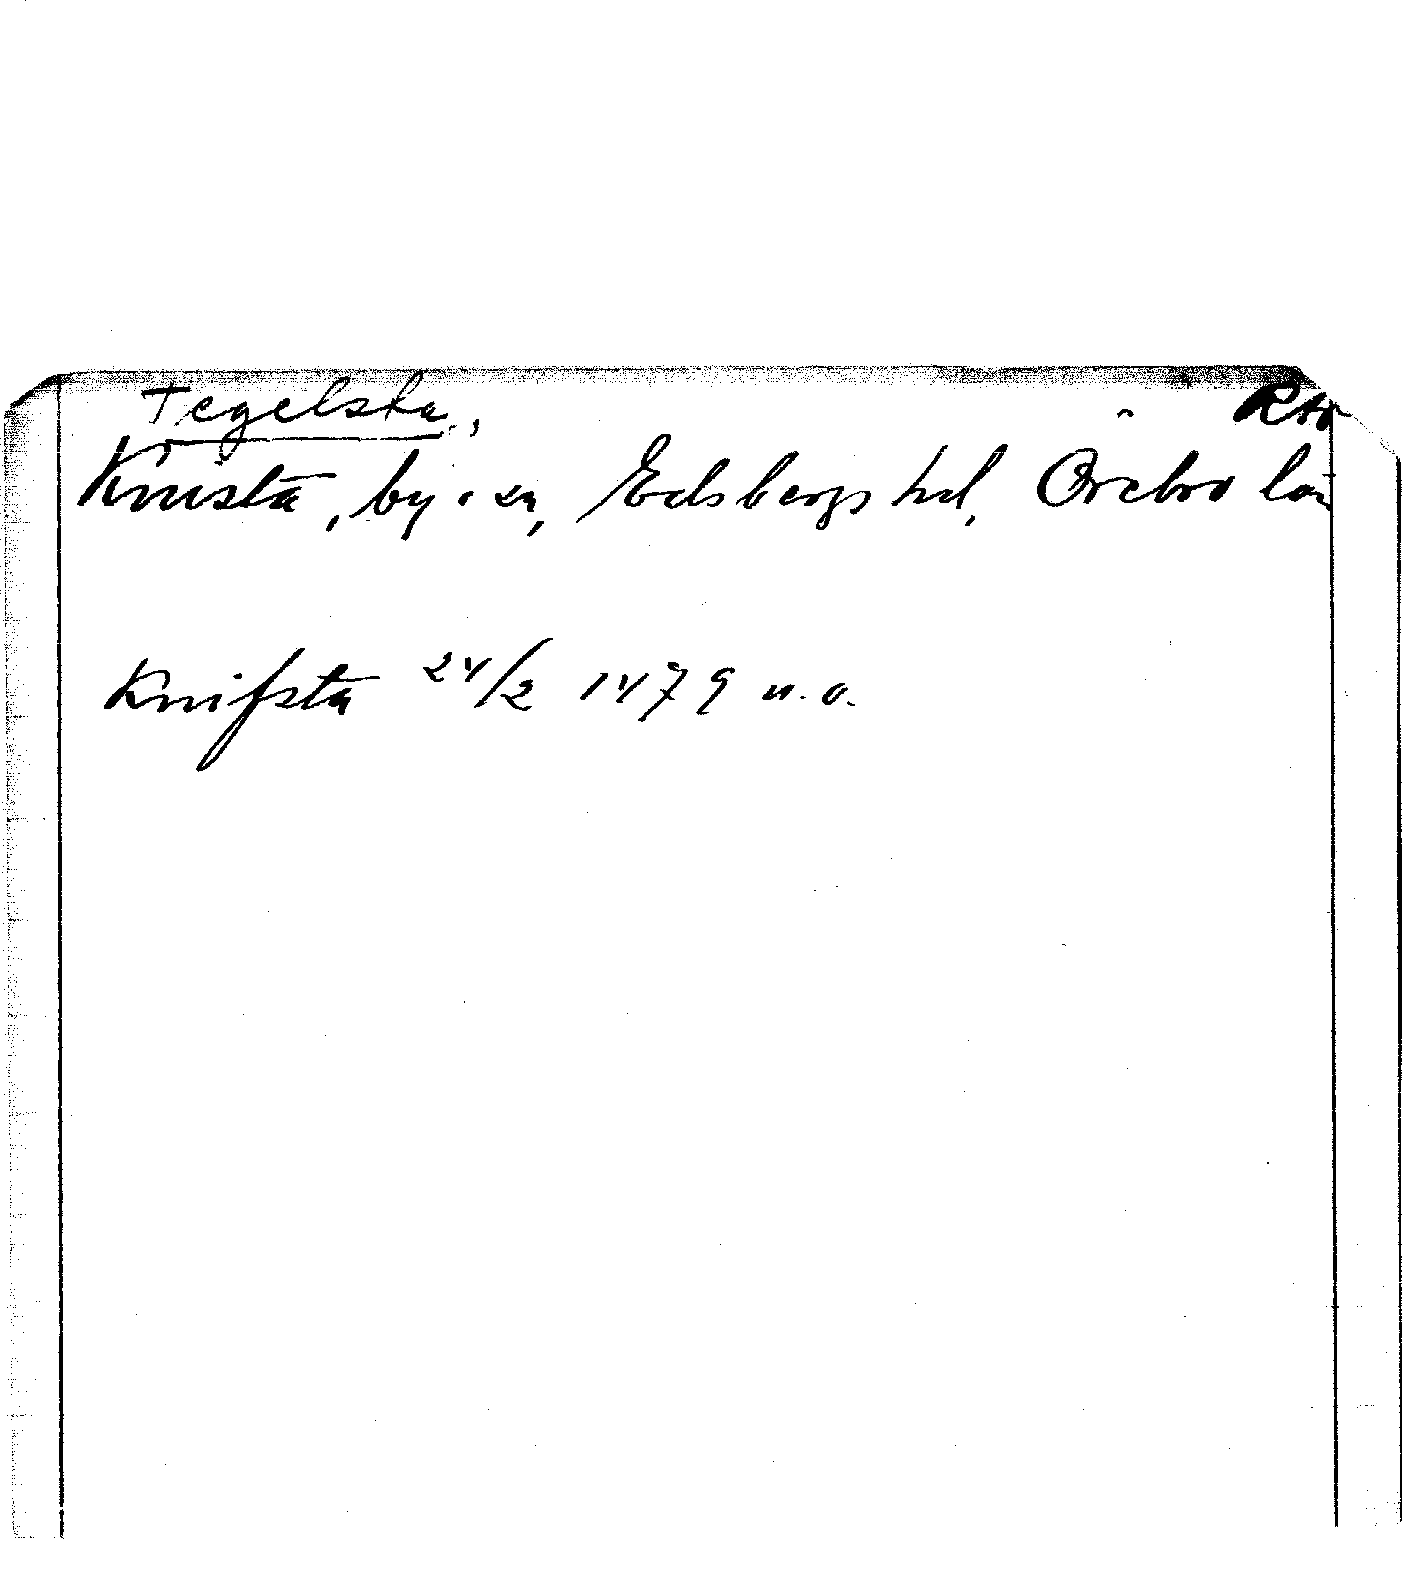 Tegelsta,
Knista, by o. sn, Edsbergs hd, Örebro län
Knifsta 24/2 1479 n. o.